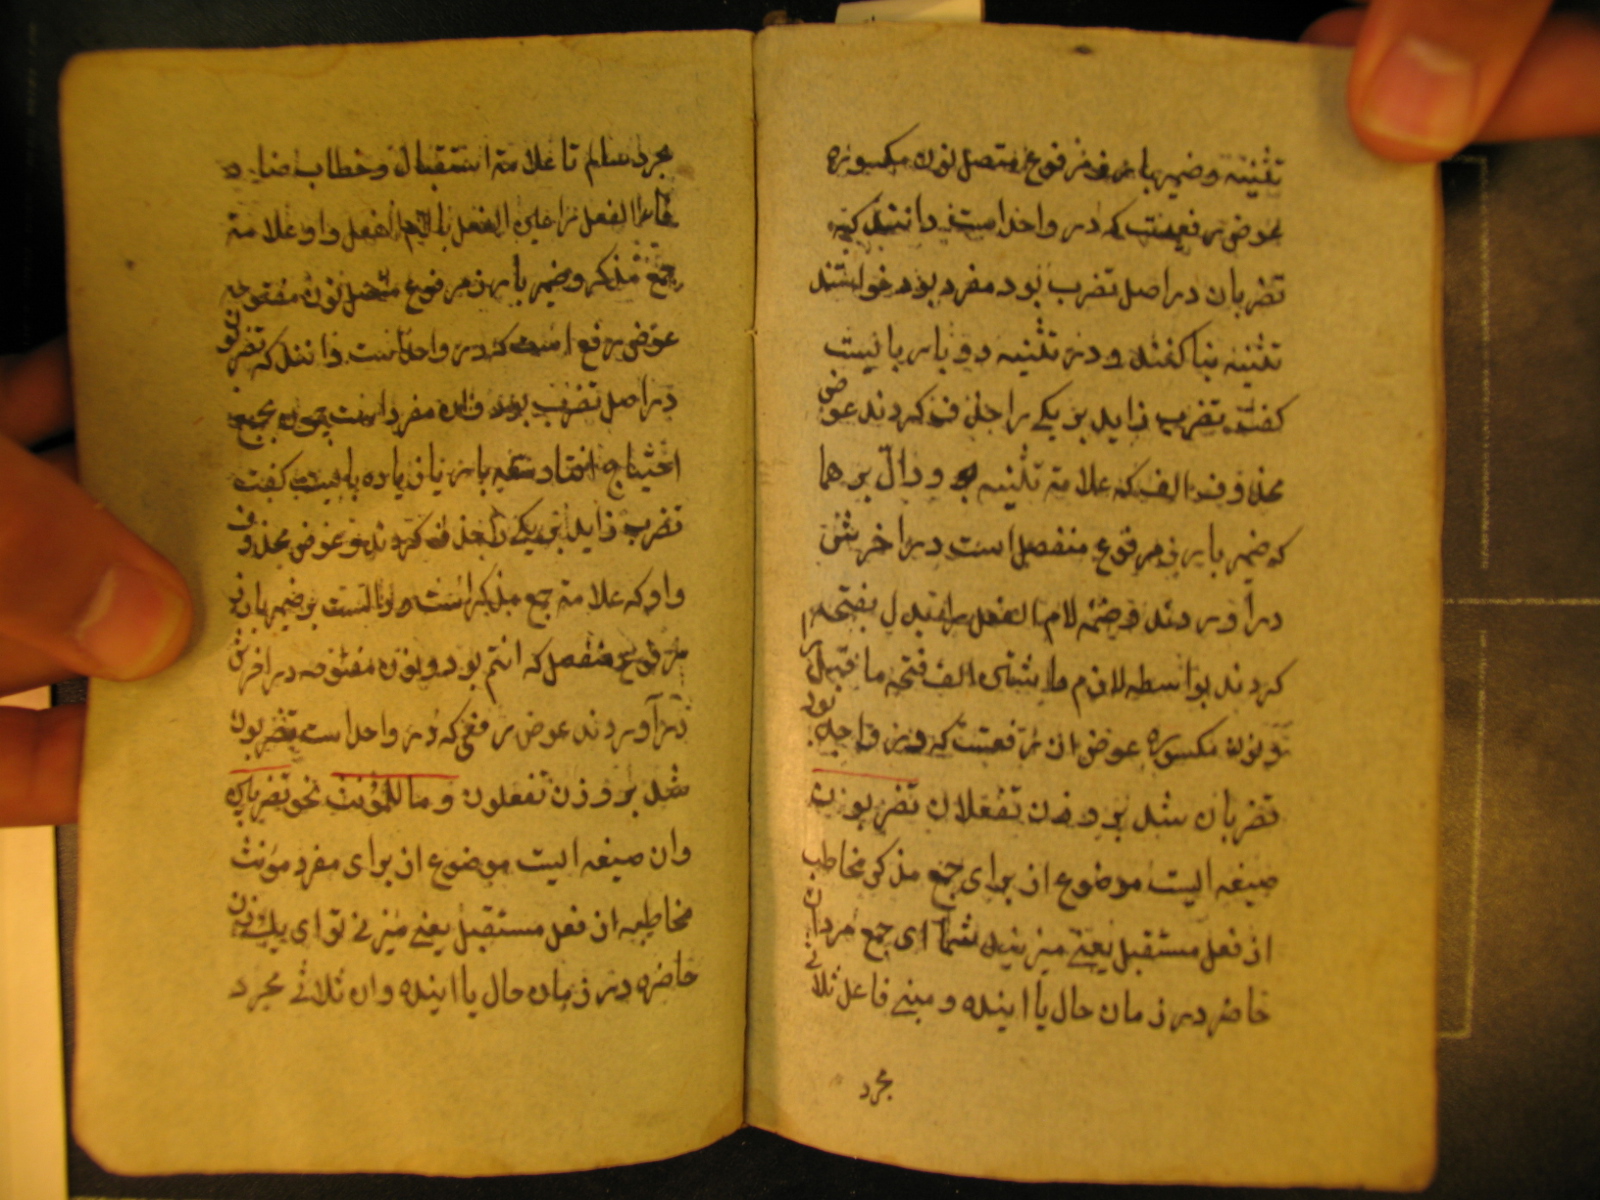 تثنیه و ضمیر بارز مرفوع متصل نون مکسوره
عوض رفعیست که در واحد است دانند که
تضربان در اصل تضرب بود مفرد بود خواستند
تثنیه بنا کنند و در تثنیه دو بار بایست
کفت تضرب زاید بر یکے را حذف کردند عوض
محذوف الف که علامة تثنیه بود و دال بر هما
که ضمیر بارز مرفوع منفصل است در اخرش
در آوردند و ضمه لام الفعل را بدل بفتحه
کردند بواسطه لازم ما قبل
و نون مکسوره عوض ان رفعیت که در واحد بود
تضربان شد بر وزن تفعلان تضربون
صیغه ایست موضوع از برای جمع مذکر مخاطب
از فعل مستقبل یعنے میزنید شما ای جمع مردان
حاضر در زمان حال یا اینده و مبنے فاعل ثلاثے
مجرد
مجرد سالم تا علامة استقبال و خطاب ضاد
فاء الفعل را عین الفعل با لام الفعل واو علامة
جمع مذکر و ضمیر بارز مرفوع متصل نون مفتوحه
عوض رفع است که در واحد است دانند که تضربون
در اصل تضرب بود مفرد است چون بجمع
احتیاج افتاد سه بار یا زیاده بایست کفت
تضرب زاید بر یکے را حذف کردند و عوض محذوف
واو که علامة جمع مذکر است و دالست بر ضمیر بارز
مرفوع منفصل که انتم بود و نون مفتوحه در اخرش
در آوردند عوض رفعی که در واحد است تضربون
شد بر وزن تفعلون و ما للمؤنث نحو تضربین
وان صیغه ایست موضوع از برای مفرد مؤنث
مخاطبه از فعل مستقبل یعنے میزنے تو ای یک زن
حاضره در زمان حال یا اینده وان ثلاثے مجرد